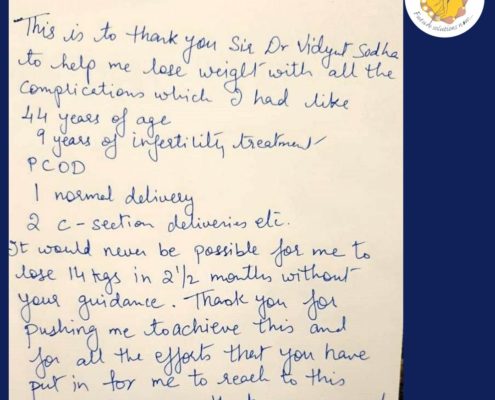 This is to thank you Sir Dr Vidyut Sodha
to help me lose weight with all the
complications which I had like
44 years of age
9 years of infertility treatment
PCOD
1 normal delivery
2 c-section deliveries etc.
It would never be possible for me to
lose 14 kgs in 2 1/2 months without
your guidance. Thank you for
pushing me to achieve this and
for all the efforts that you have
put in for me to reach to this